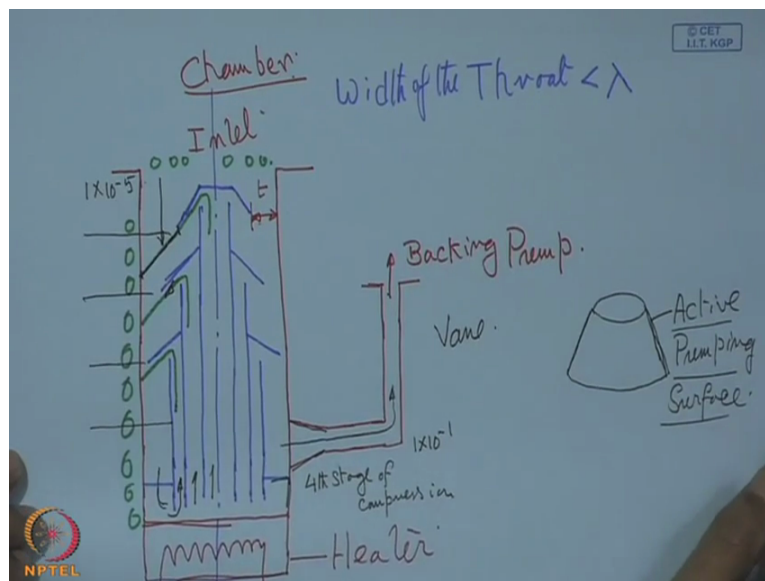 © CET
I.I.T. KGP
Chamber.
Width of the Throat < λ
Inlet
1×10-5
t
Backing Pump.
Vane.
Active
Pumping
Surface.
1×10-1
4th stage of
compression
Heater
NPTEL